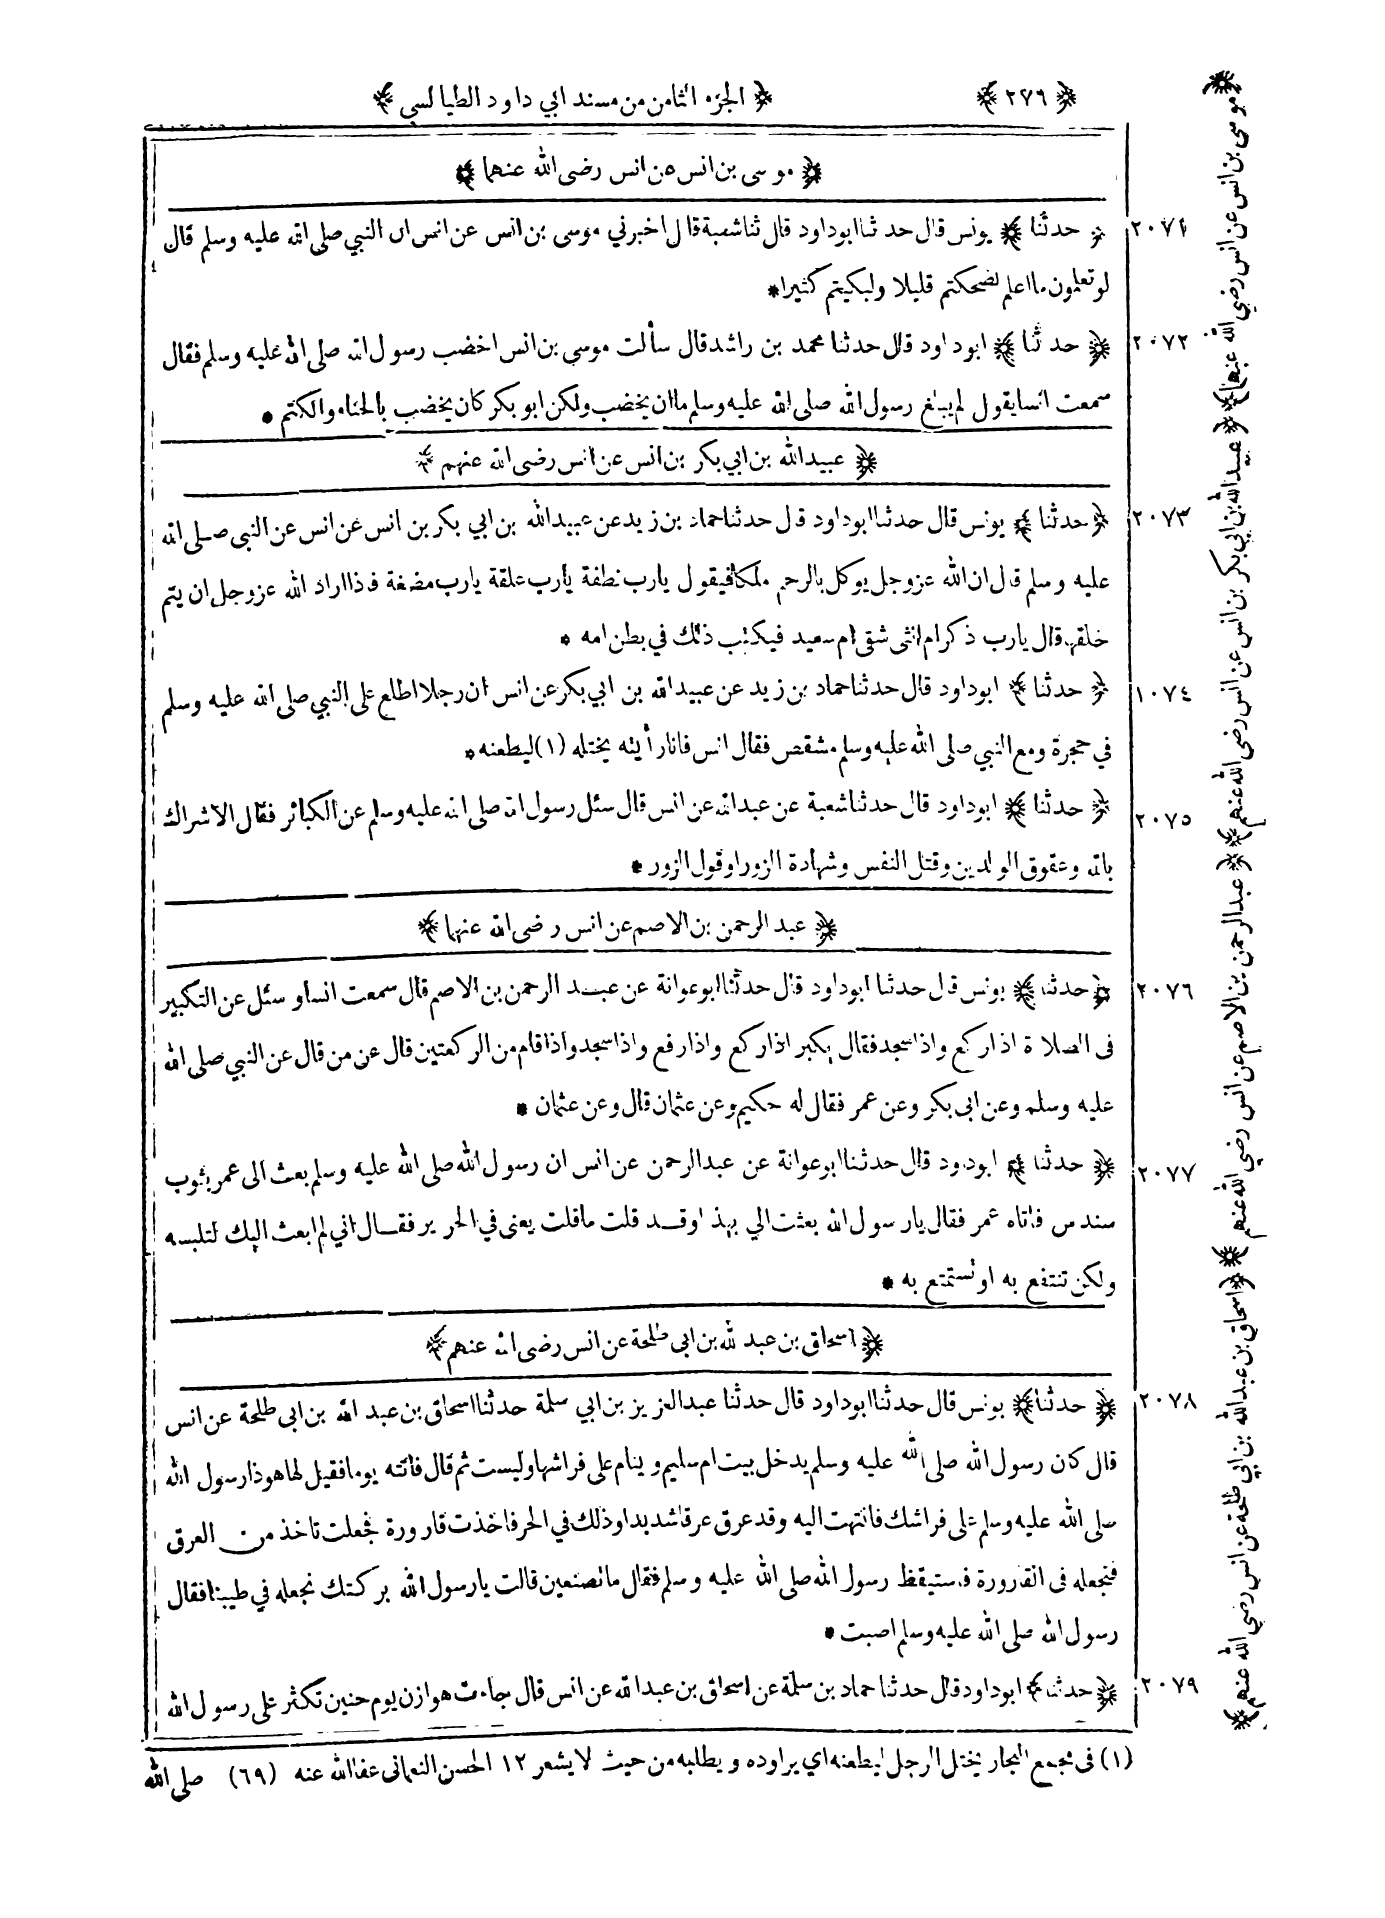 ﴿٢٧٦﴾ ﴿الجزء الثامن من مسند ابي داود الطيالسي﴾
﴿موسى بن انس عن انس رضى الله عنهما﴾
٢٠٧١ ﴿حدثنا﴾ يونس قال حدثنا ابو داود قال ثنا شعبة قال اخبرني موسى بن انس عن انس ان النبي صلى الله عليه وسلم قال
لو تعلمون ما اعلم لضحكتم قليلا ولبكيتم كثيرا*
٢٠٧٢ ﴿حدثنا﴾ ابو داود قال حدثنا محمد بن راشد قال سألت موسى بن انس اخضب رسول الله صلى الله عليه وسلم فقال
سمعت انسا يقول لم يبلغ رسول الله صلى الله عليه وسلم ما ان يخضب ولكن ابو بكر كان يخضب بالحناء والكتم *
﴿عبيد الله بن ابي بكر بن انس عن انس رضى الله عنهم﴾
٢٠٧٣ ﴿حدثنا﴾ يونس قال حدثنا ابو داود قال حدثنا حماد بن زيد عن عبيد الله بن ابي بكر بن انس عن انس عن النبى صلى الله
عليه وسلم قال ان الله عز وجل يوكل بالرحم ملكا فيقول يارب نطفة يارب علقة يارب مضغة فاذا اراد الله عز وجل ان يتم
خلقها قال يارب ذكر ام انثى شقى ام سعيد فيكتب ذلك في بطن امه *
١٠٧٤ ﴿حدثنا﴾ ابو داود قال حدثنا حماد بن زيد عن عبيد الله بن ابي بكر عن انس ان رجلا اطلع على النبي صلى الله عليه وسلم
في حجرة ومع النبي صلى الله عليه وسلم مشقص فقال انس فانا رأيته يختله (١) ليطعنه*
٢٠٧٥ ﴿حدثنا﴾ ابو داود قال حدثنا شعبة عن عبد الله عن انس قال سئل رسول الله صلى الله عليه وسلم عن الكبائر فقال الاشراك
بالله وعقوق الوالدين وقتل النفس وشهادة الزور او قول الزور *
﴿عبد الرحمن بن الاصم عن انس رضى الله عنهما﴾
٢٠٧٦ ﴿حدثنا﴾ يونس قال حدثنا ابو داود قال حدثنا ابو عوانة عن عبد الرحمن بن الاصم قال سمعت انسا وسئل عن التكبير
فى الصلاة اذا ركع واذا سجد فقال يكبر اذا ركع واذا رفع واذا سجد واذا قام من الركعتين قال عن من قال عن النبي صلى الله
عليه وسلم وعن ابى بكر وعن عمر فقال له حكيم وعن عثمان قال وعن عثمان *
٢٠٧٧ ﴿حدثنا﴾ ابو داود قال حدثنا ابو عوانة عن عبد الرحمن عن انس ان رسول الله صلى الله عليه وسلم بعث الى عمر بثوب
سندس فاتاه عمر فقال يا رسول الله بعثت الي بهذا وقد قلت ما قلت يعنى في الحرير فقال اني لم ابعث اليك لتلبسه
ولكن تنتفع به او تستمتع به *
﴿اسحاق بن عبد الله بن ابى طلحة عن انس رضى الله عنهم﴾
٢٠٧٨ ﴿حدثنا﴾ يونس قال حدثنا ابو داود قال حدثنا عبد العزيز بن ابي سلمة حدثنا اسحاق بن عبد الله بن ابى طلحة عن انس
قال كان رسول الله صلى الله عليه وسلم يدخل بيت ام سليم وينام على فراشها وليست ثم قال فاتته يوما فقيل لها هو ذا رسول الله
صلى الله عليه وسلم على فراشك فانتهت اليه وقد عرق عرقا شديدا وذلك في الحر فاخذت قارورة فجعلت تاخذ من العرق
فتجعله فى القارورة فاستيقظ رسول الله صلى الله عليه وسلم فقال ما تصنعين قالت يا رسول الله بركتك نجعله في طيبنا فقال
رسول الله صلى الله عليه وسلم اصبت *
٢٠٧٩ ﴿حدثنا﴾ ابو داود قال حدثنا حماد بن سلمة عن اسحاق بن عبد الله عن انس قال جاءت هوازن يوم حنين تكثر على رسول الله
(١) فى مجمع البحار يختل الرجل ليطعنه اي يراوده ويطلبه من حيث لا يشعر ١٢ الحسن النعمانى عفا الله عنه (٦٩) صلى الله
﴿موسى بن انس عن انس رضي الله عنهما﴾ ﴿عبيد الله بن ابي بكر بن انس عن انس رضى الله عنهم﴾ ﴿عبد الرحمن بن الاصم عن انس رضي الله عنهم﴾ ﴿اسحاق بن عبد الله بن ابي طلحة عن انس رضي الله عنهم﴾